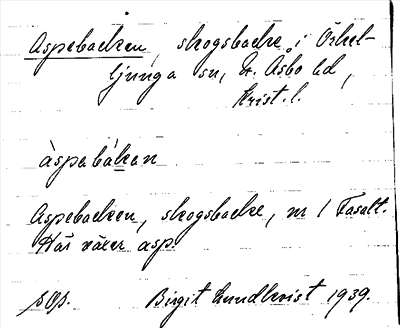 Aspebacken, skogsbacke i Örkel-
ljunga sn, N. Åsbo hd,
Krist. l.
àspebákan
Aspebacken, skogsbacke, nr 1 Fasalt.
Här växer asp.
Birgit Lundkvist 1939.